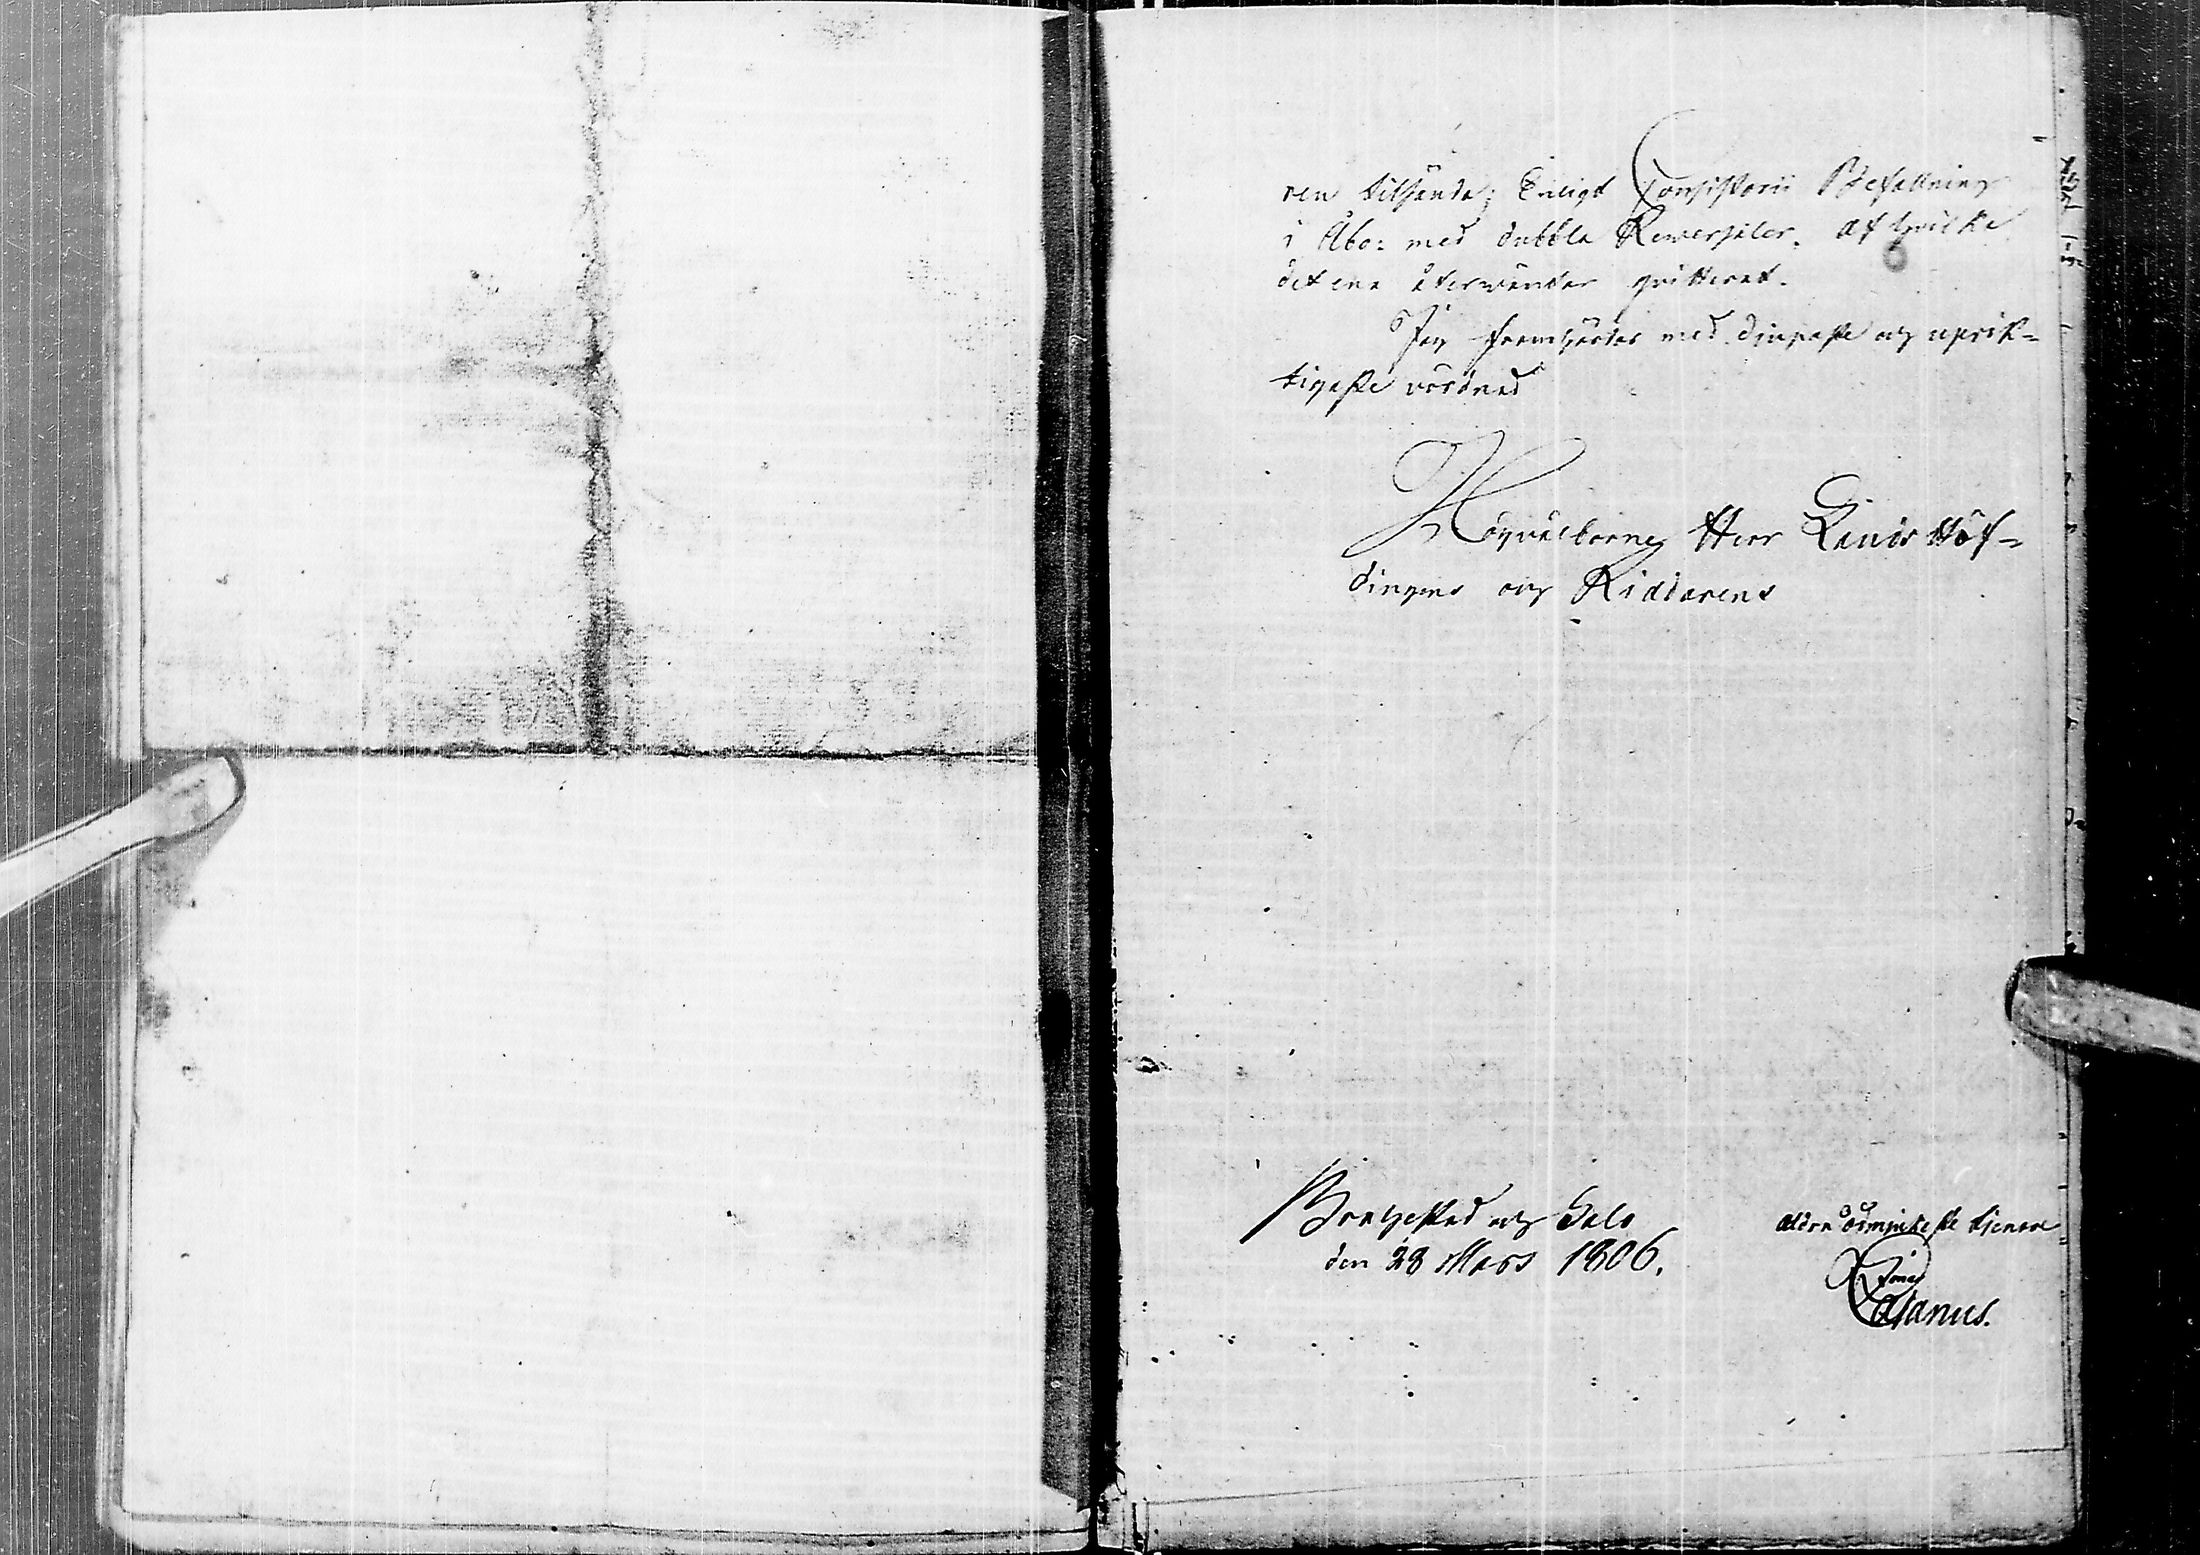 ren tilsända; Enligt Consistorii Befallning
i Åbo: med dubbla Reversaler. af hvilke
det ena återväntar qvitterat.
Jag framhärdar med diupaste och uprik=
tigaste vördnad
Högvälborne Herr Lands Höf=
dingens och Riddarens
Brahestad och Salo
den 28 Mars 1806.
aldra ödmjukaste tjenare
Jonas
Cajanus.